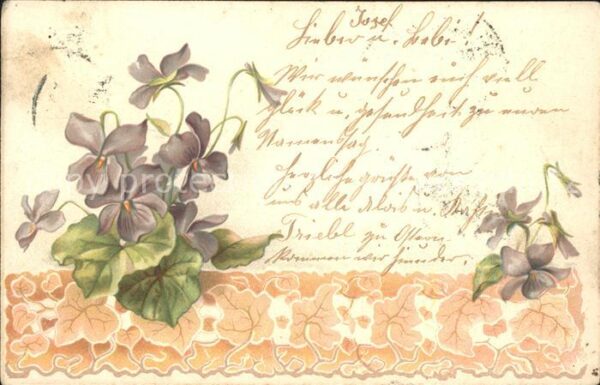 Josef
Lieber u. Bebi!
Wir wünschen euch viell
glück u. gesundheit zu euren
Namenstag.
herzliche grüße von
uns alle Alois u.
Triebl zu Ostern
kommen wir